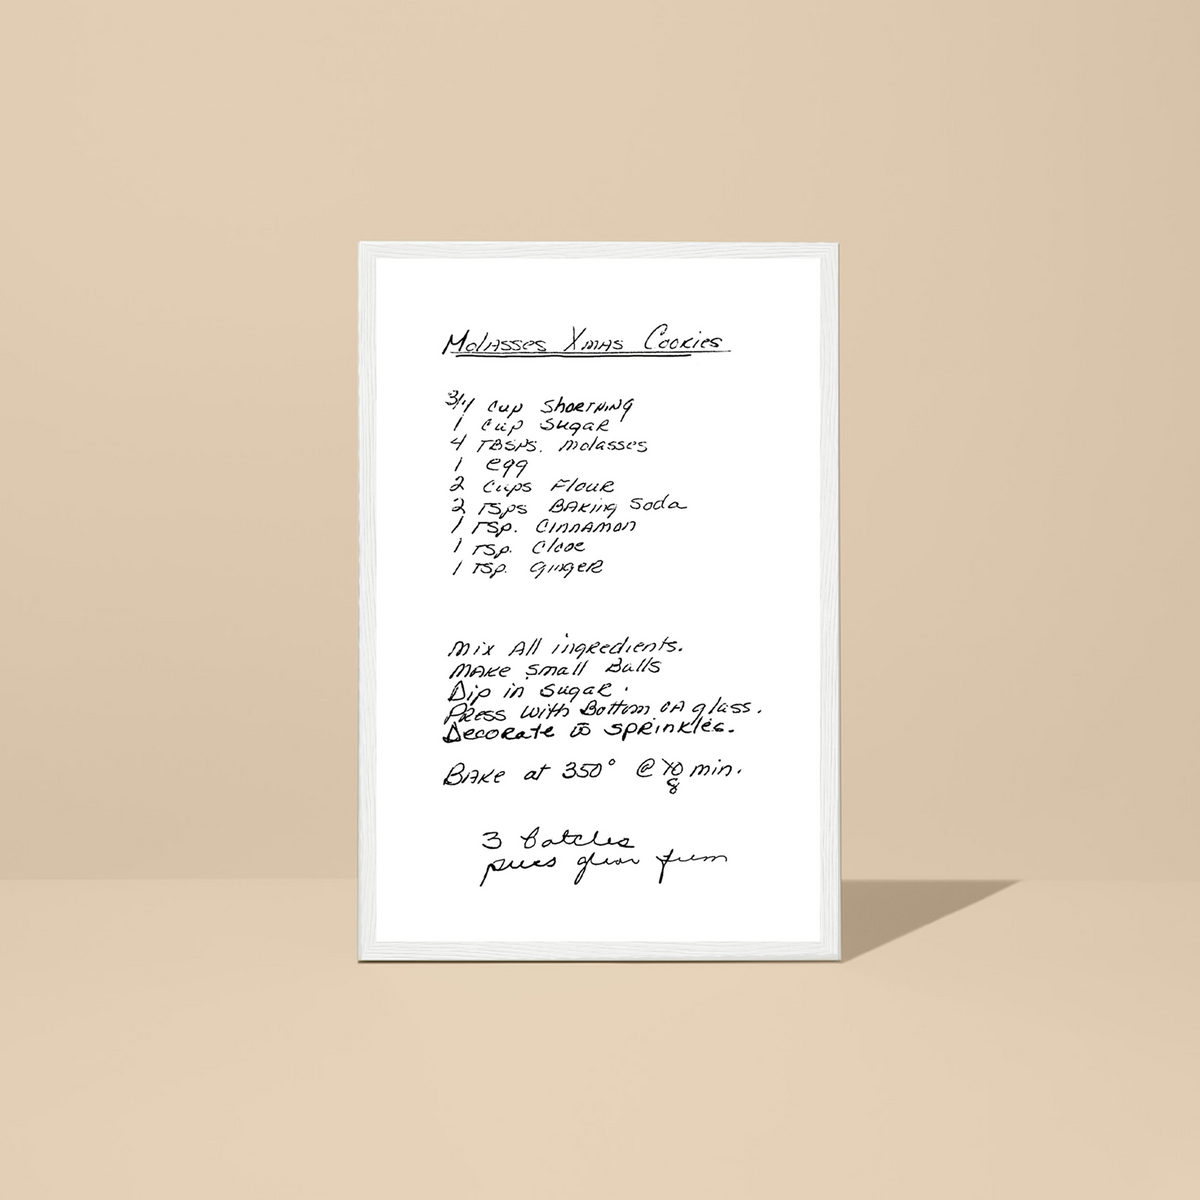 Molasses Xmas Cookies
3/4 cup Shortning
1 cup Sugar
4 TBSPS. molasses
1 egg
2 Cups Flour
2 Tsps Baking Soda
1 Tsp. Cinnamon
1 Tsp. Clove
1 Tsp. Ginger
Mix All ingredients.
Make small Balls
Dip in sugar.
Press with Bottom of glass.
Decorate w̄ sprinkles.
Bake at 350° @ 10 min.
8
3 batches